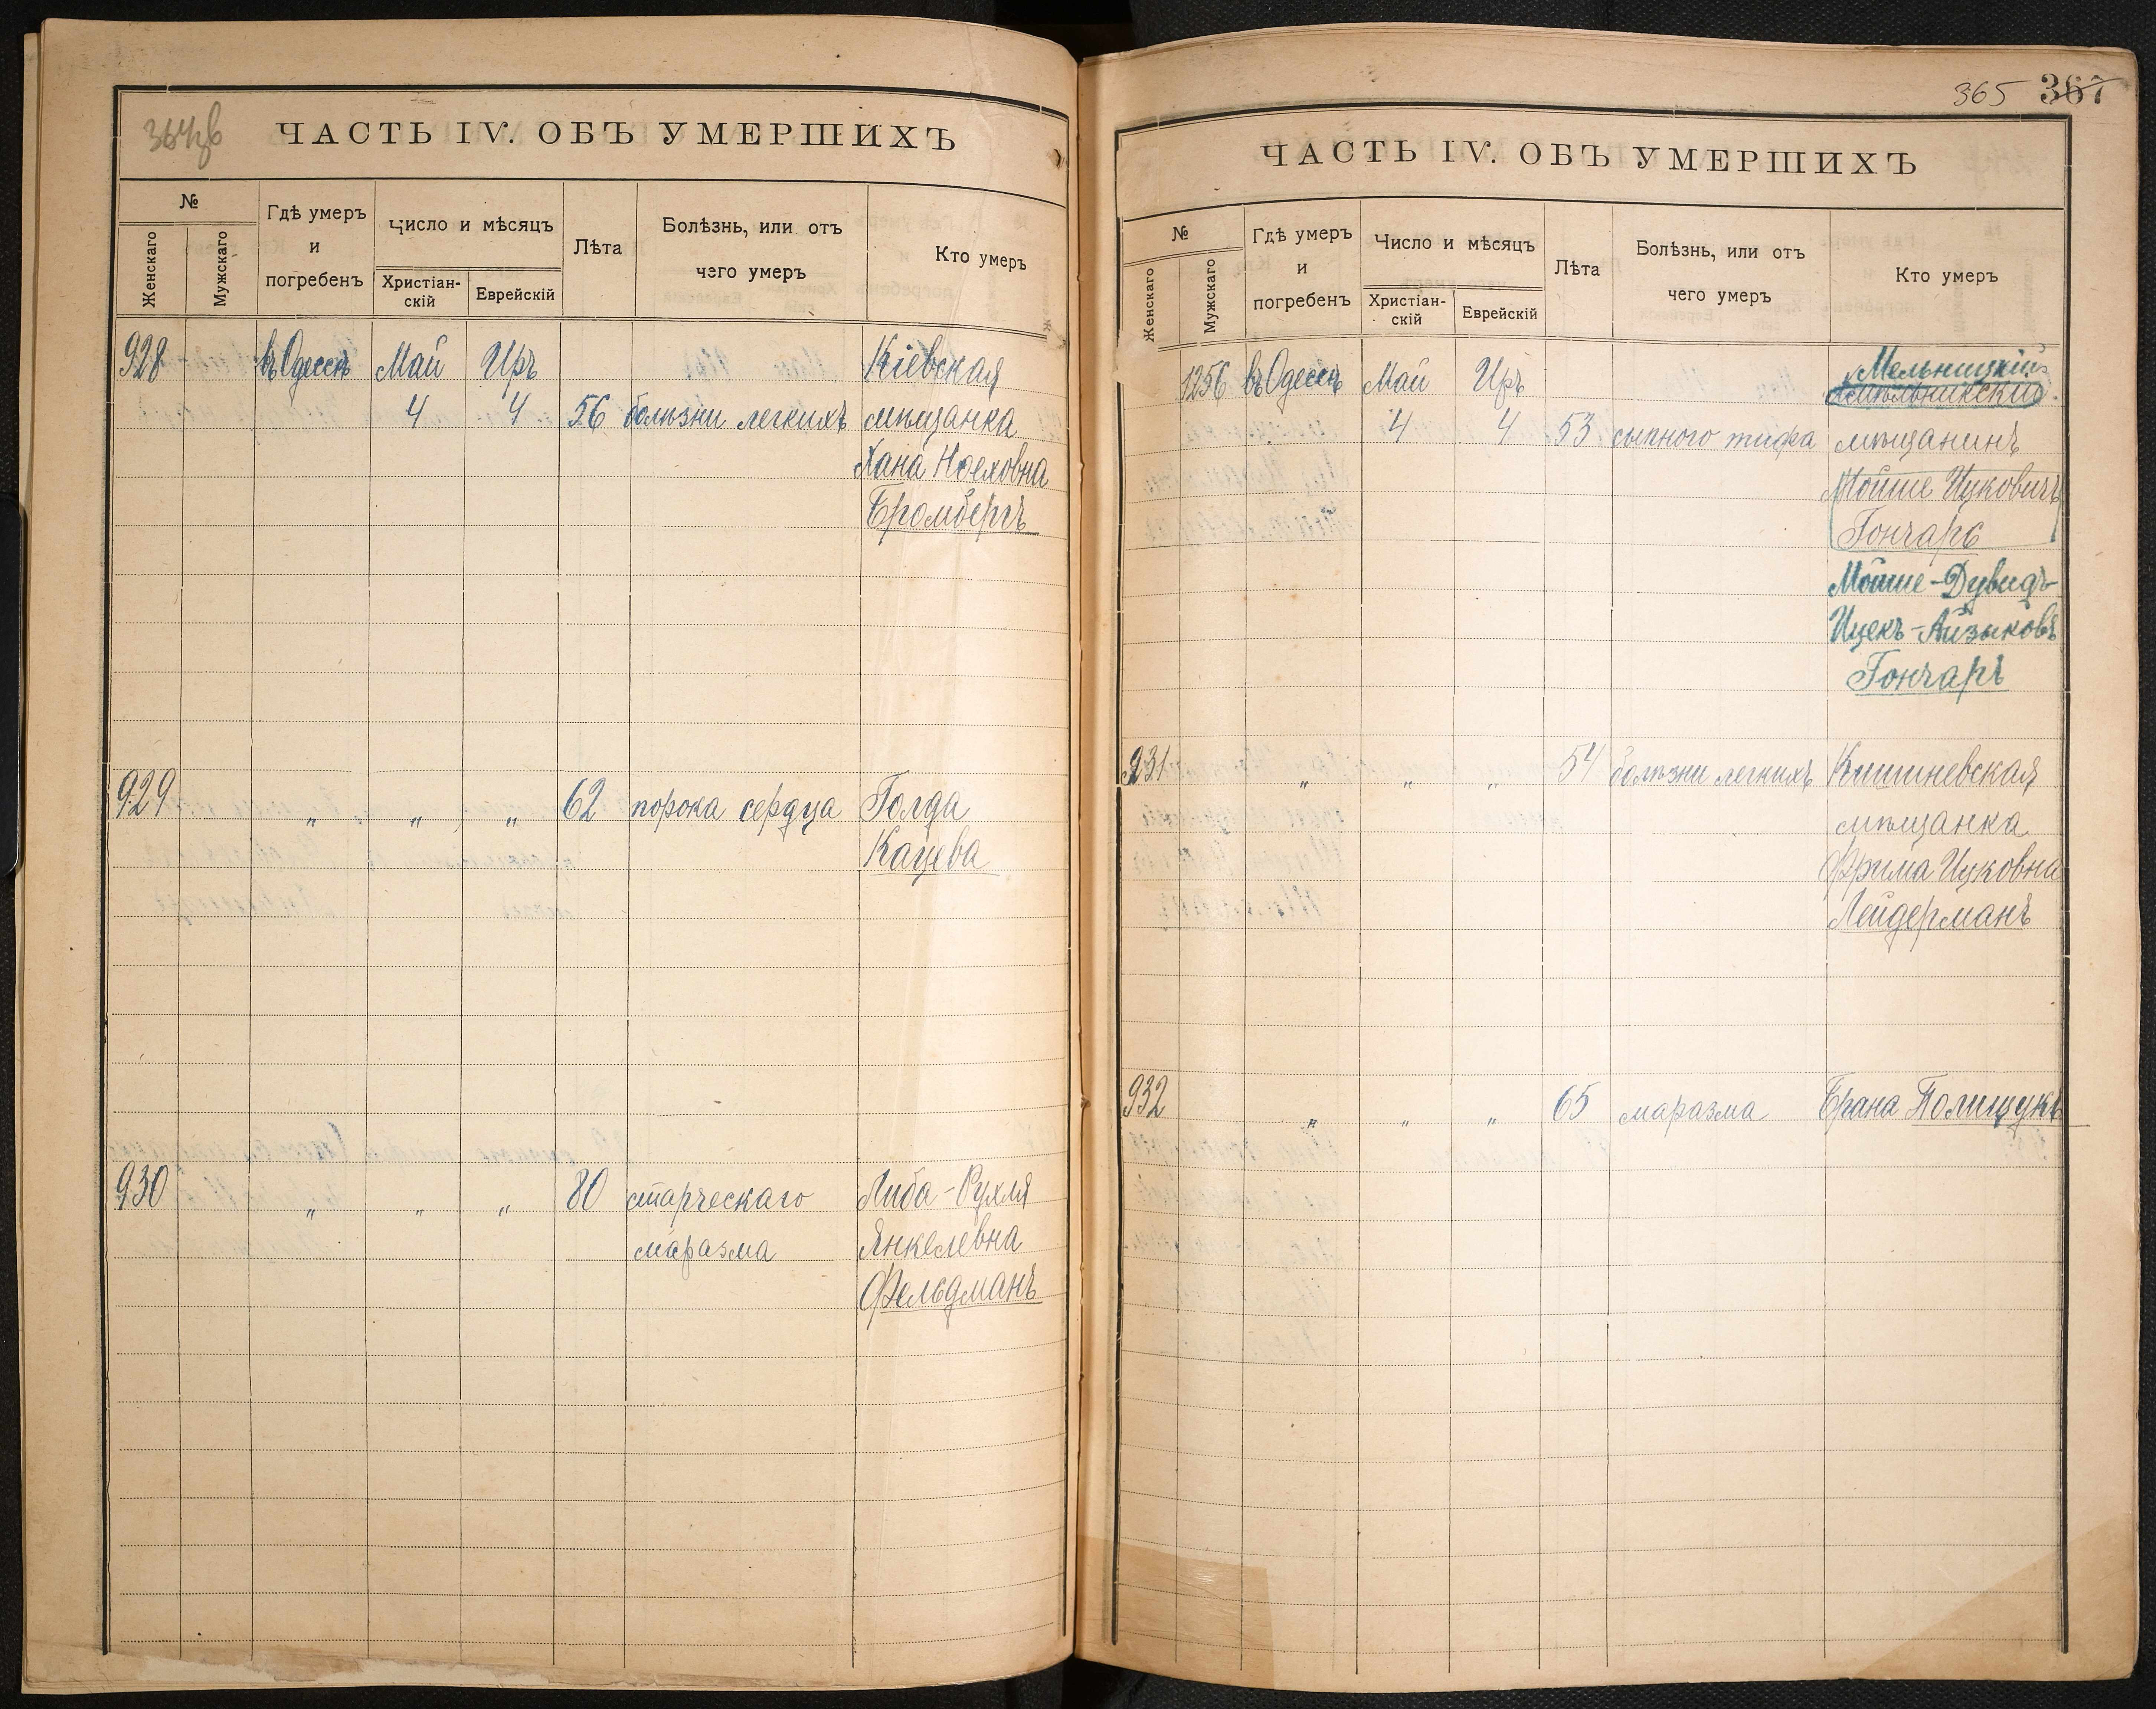 ЧАСТЬ IV. ОБЪ УМЕРШИХЪ
№
Женскаго
Мужскаго
Гдѣ умеръ
и
погребенъ
Число и мѣсяцъ
Христіан-
скій
Еврейскій
Лѣта
Болѣзнь, или отъ
чего умеръ
Кто умеръ
928 въ Одессѣ Май Иръ Кіевская
4 4 56 болѣзни легкихъ мѣщанка
Хана Ноеховна
Бромбергъ
929 " " " 62 порока сердца Голда
Кацева
930 " " " 80 старческаго Либа-Рухля
маразма Янкелевна
Фельдманъ
365 367
ЧАСТЬ IV. ОБЪ УМЕРШИХЪ
№
Женскаго
Мужскаго
Гдѣ умеръ
и
погребенъ
Число и мѣсяцъ
Христіан-
скій
Еврейскій
Лѣта
Болѣзнь, или отъ
чего умеръ
Кто умеръ
Мельницкій
1256 въ Одессѣ Май Иръ
4 4 53 сыпного тифа мѣщанинъ
Мойше Ицковичъ
Гончаръ
Мойше-Дувидъ-
Ицекъ-Айзыковъ
Гончаръ
931 " " " 54 болѣзни легкихъ Кишиневская
мѣщанка
Фрима Ицковна
Лейдерманъ
932 " " " 65 маразма Брана Полищукъ